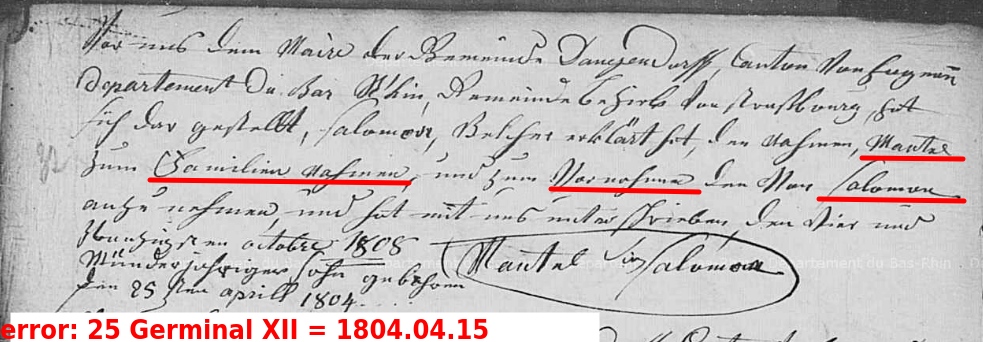 Vor uns dem Maire der Gemeinde Dauendorff, Canton Von Hagenau
Departement Du Bas Rhin, Gemeinde bezirk Von Strasbourg, hat
sich dar gestellt, Salomon, Welcher erklärt hat, den Nahmen, Mantel
zum Familien Nahmen, und zum Vornahme den Von Salomon
anzu nehmen, und hat mit uns unterschrieben, den Vier und
Zwanzigsten octobre 1808
Münderjähriger Sohn gebohren
den 25 sten aprill 1804.
Mantel Salomon
error: 25 Germinal XII = 1804.04.15